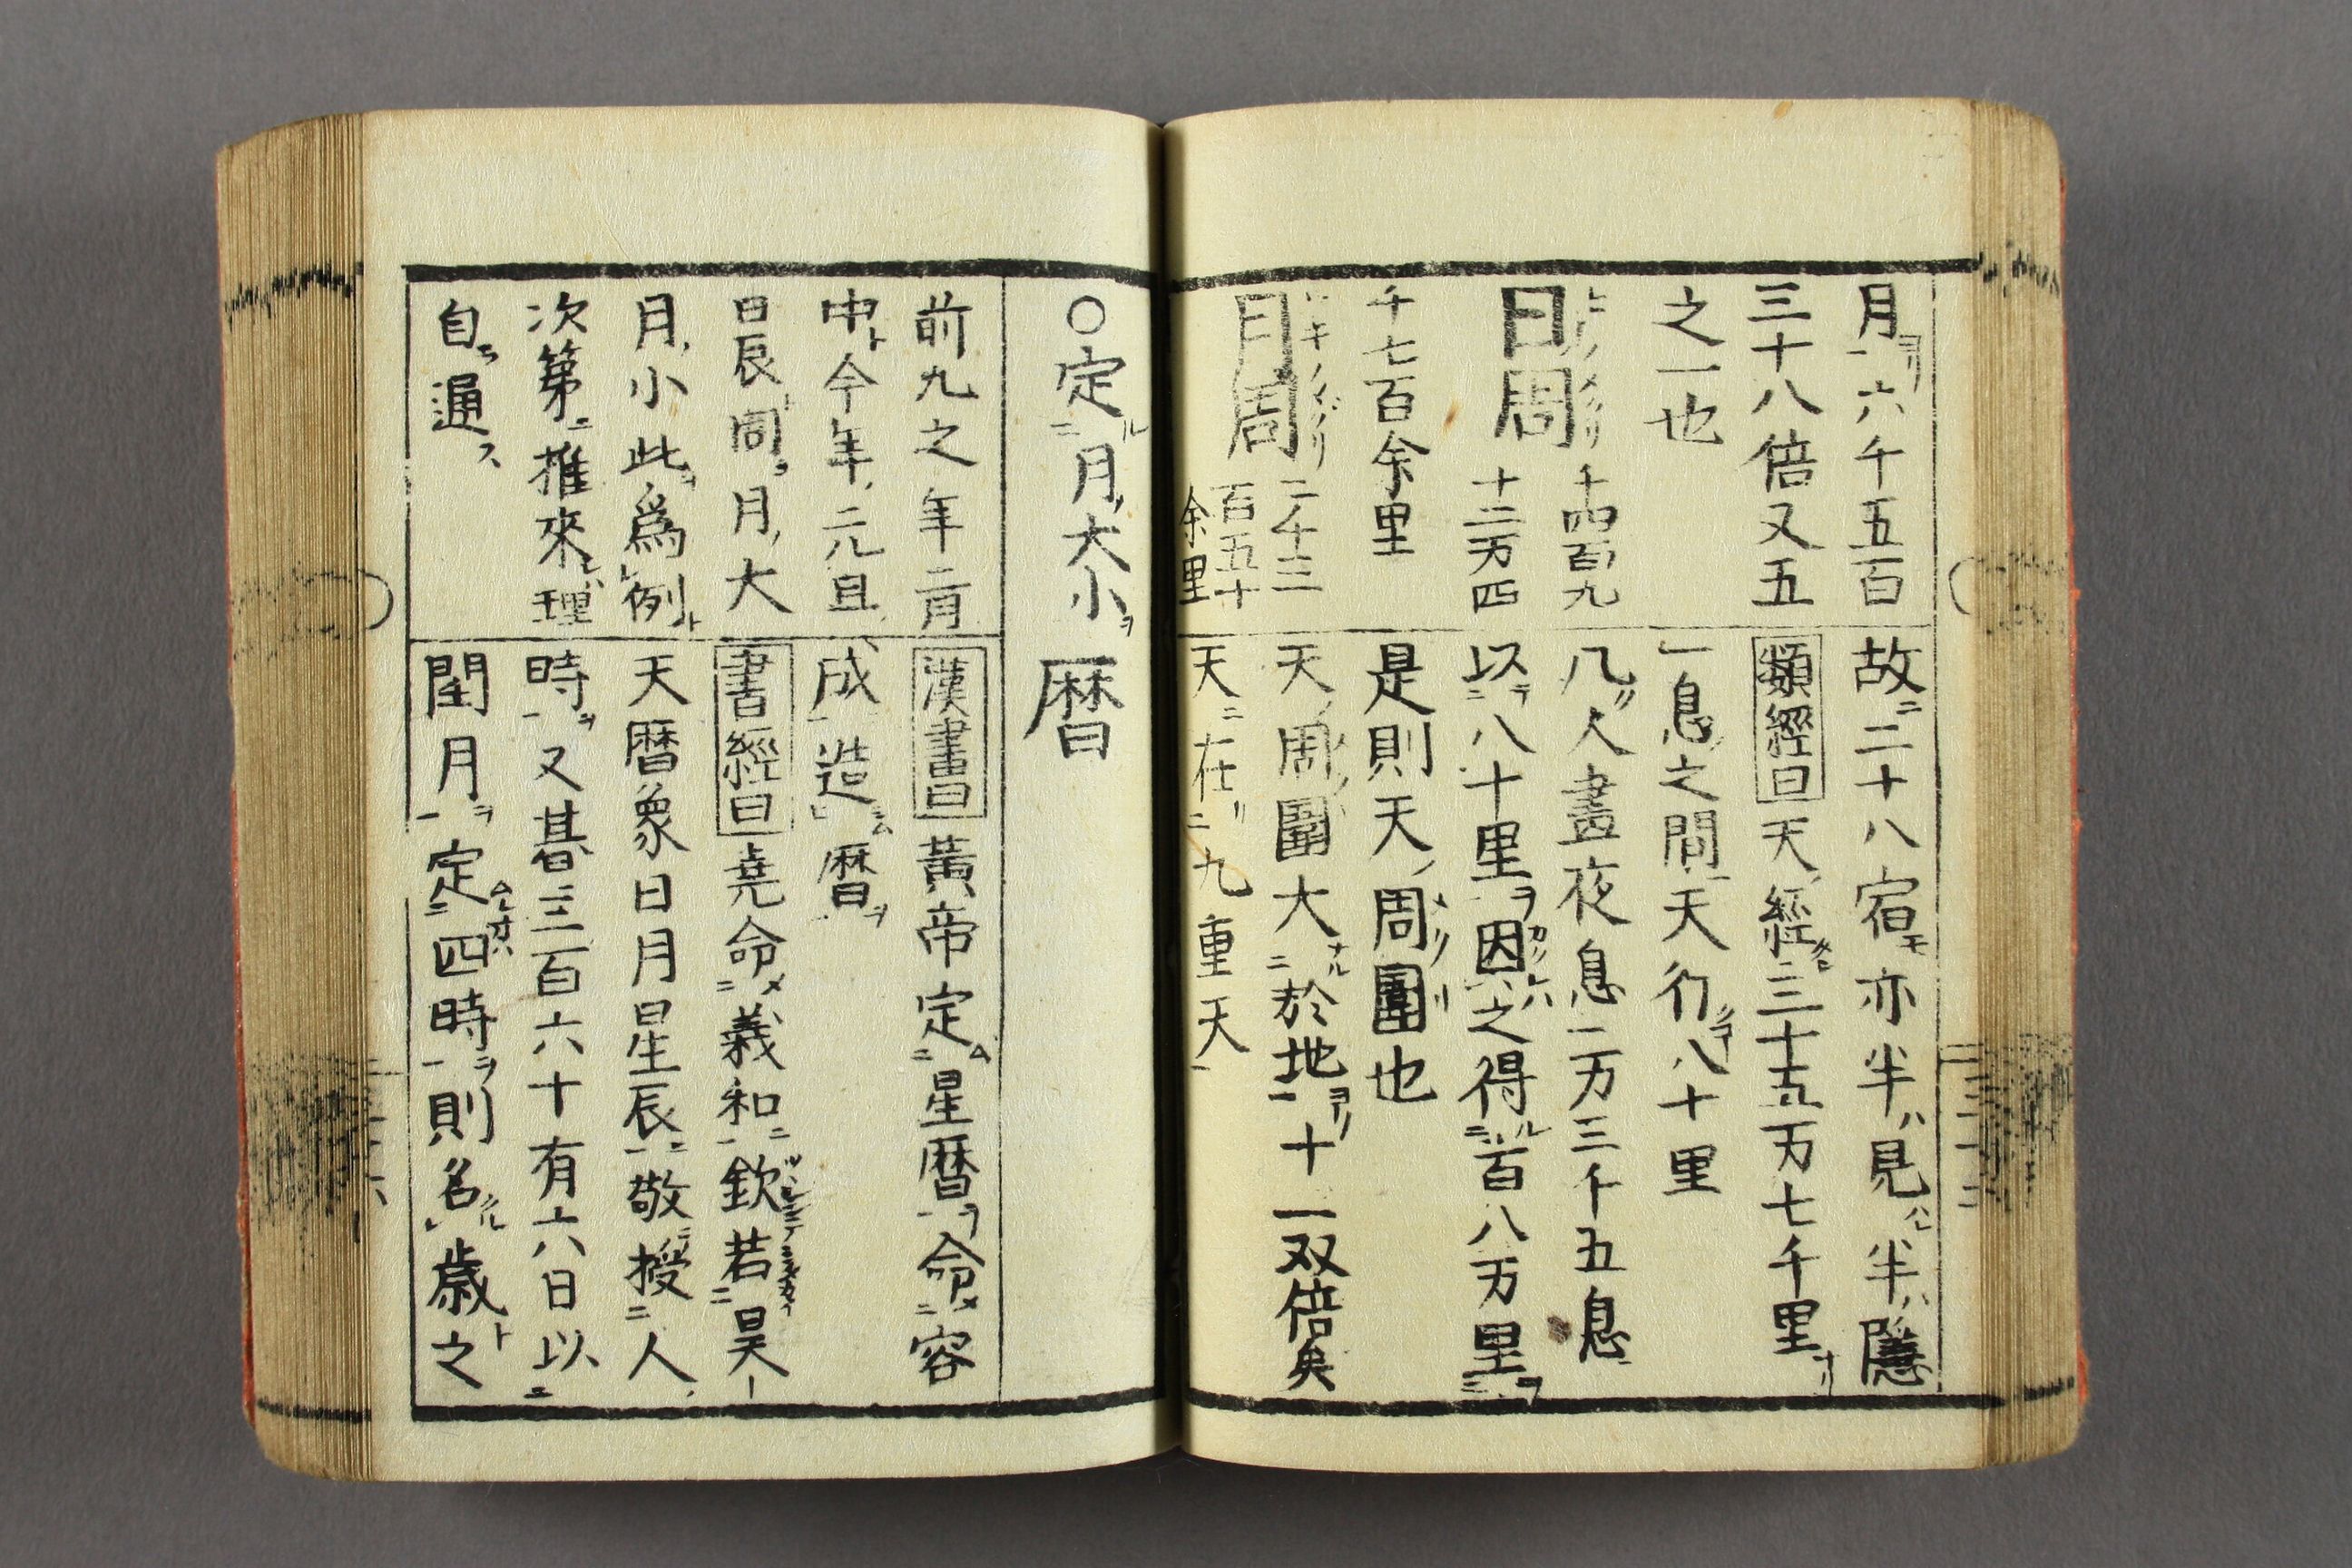 月ヨリ六千五百
三十八倍又五
之一也
日周 千四百九
十二万四
千七百余里
月周 二千三
百五十
余里
故ニ二十八宿モ亦半ハ見ハレ半ハ隱
類經曰天ノ經タ三十五万七千里ナリ
一息之間天行八十里
凡ソ人晝夜息一万三千五息
以テ八十里ヲ因之得ル二百八万里ヲ
是則天ノ周圍也
天ノ周圍大ナル於地ヨリ十一双倍矣
天ニ在リ九重天
○定ル月ノ大小ヲ暦
前九之年二月
中ト今年ノ元旦
日辰同ヲ月ノ大
月ノ小此ヲ爲例ト
次第ニ推來レハ理
自ラ通ス
漢書曰黃帝定ム星暦ヲ命メ容
成造ム暦ヲ
書經曰堯命メ義和ニ欽若昊
天暦象日月星辰ニ敬授人ノ
時ヲ又朞三百六十有六日以
閏月ヲ定四時ヲ則名ル歳ト之